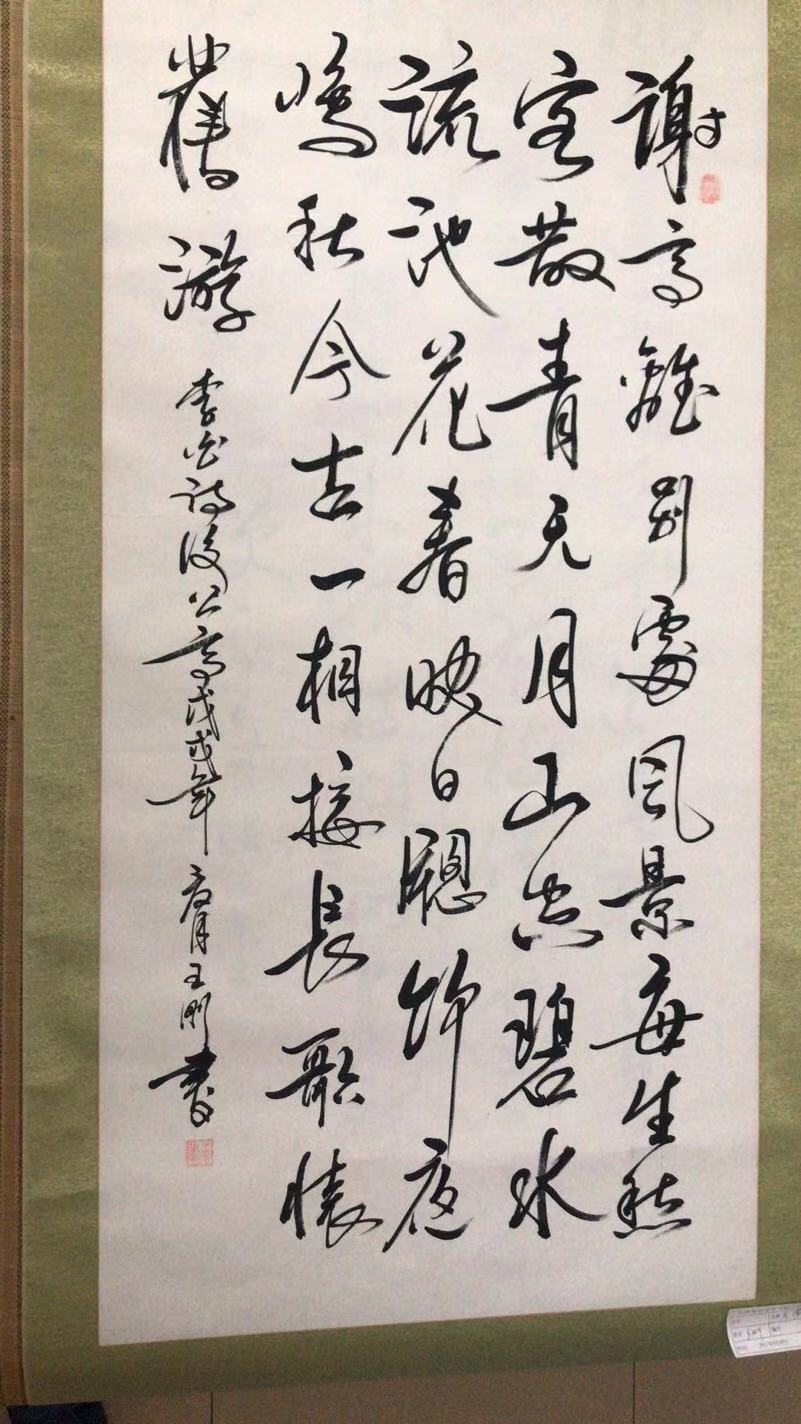 謝亭離別處風景每生愁
客散青天月山空碧水
流池花春映日窗竹夜
鳴秋今古一相接長歌懷
舊游
李白詩謝公亭戊戌年夏月王剛書